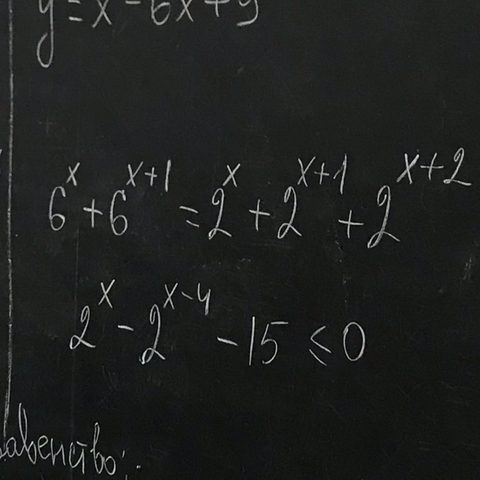 y = x - 6x + 9
6^x + 6^{x+1} = 2^x + 2^{x+1} + 2^{x+2}
2^x - 2^{x-4} - 15 ≤ 0